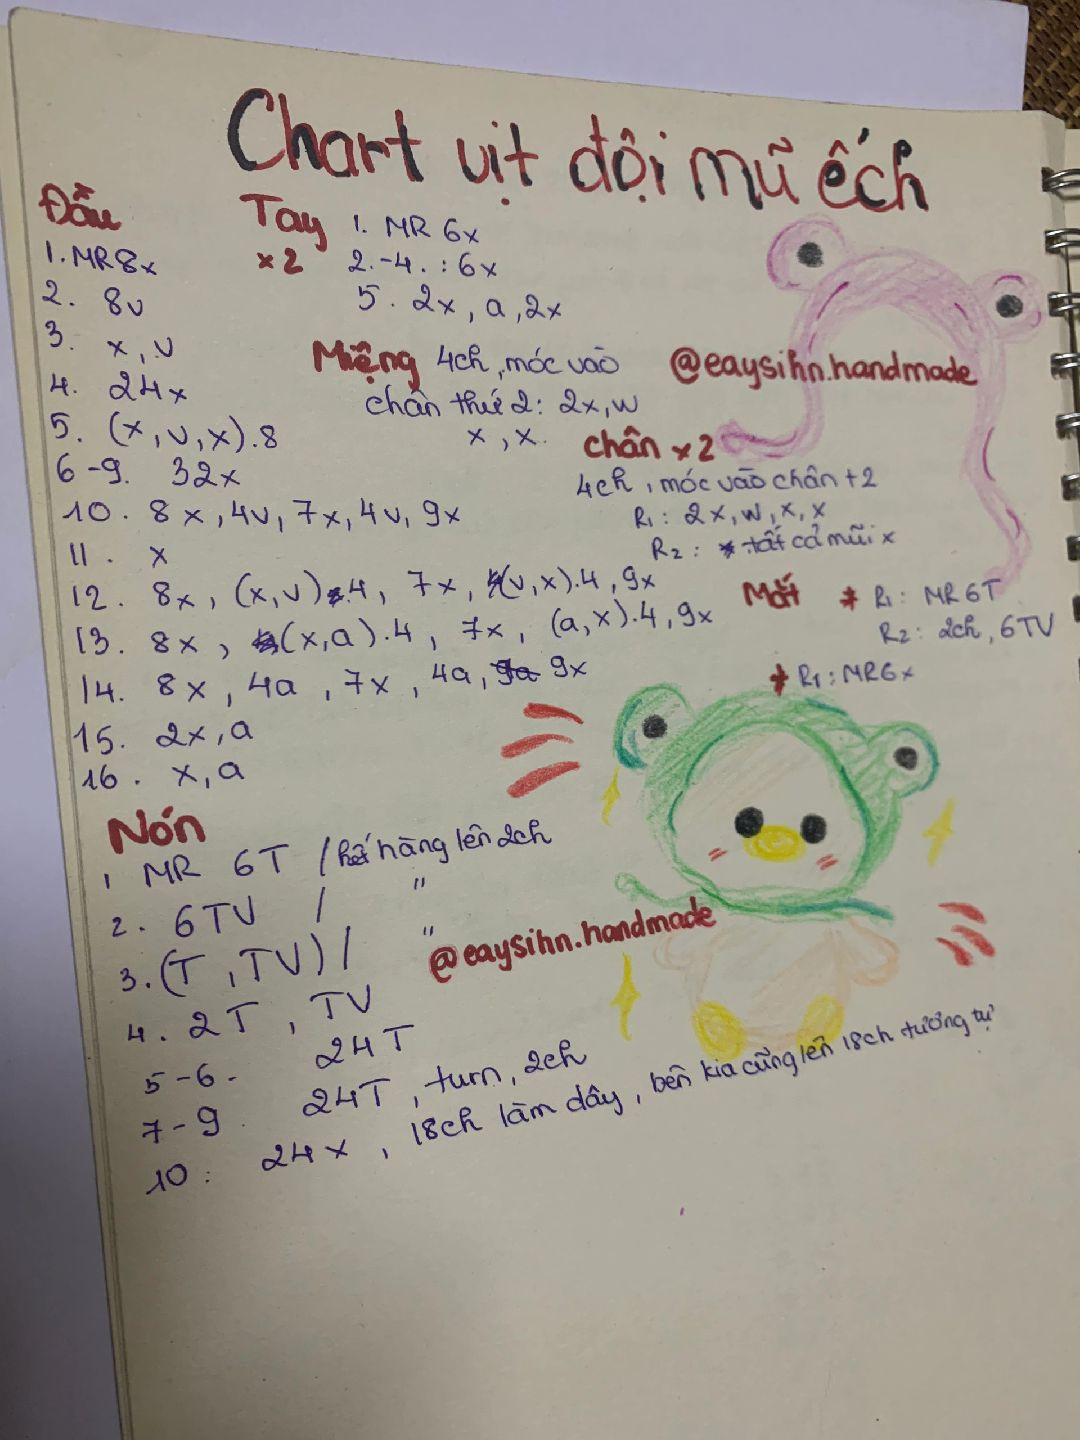 Chart vịt đội mũ ếch
Đầu
1. MR 8x
2. 8v
3. x, v
4. 24x
5. (x, v, x).8
6-9. 32x
10. 8x, 4v, 7x, 4v, 9x
11. x
12. 8x, (x, v).4, 7x, (v, x).4, 9x
13. 8x, (x, a).4, 7x, (a, x).4, 9x
14. 8x, 4a, 7x, 4a, 9a 9x
15. 2x, a
16. x, a
Tay x2
1. MR 6x
2.-4. : 6x
5. 2x, a, 2x
Miệng 4ch, móc vào
chân thứ 2: 2x, w
x, x.
@eaysihn.handmade
Chân x2
4ch, móc vào chân t2
R1: 2x, w, x, x
R2: tất cả mũi x
Mắt * R1: MR 6T
R2: 2ch, 6TV
* R1: MR6x
Nón
1 MR 6T / hết hàng lên 2ch
2. 6TV / "
3. (T, TV) / "
@eaysihn.handmade
4. 2T, TV
5-6. 24T
7-9. 24T, turn, 2ch
10: 24x, 18ch làm dây, bên kia cũng lên 18ch tương tự